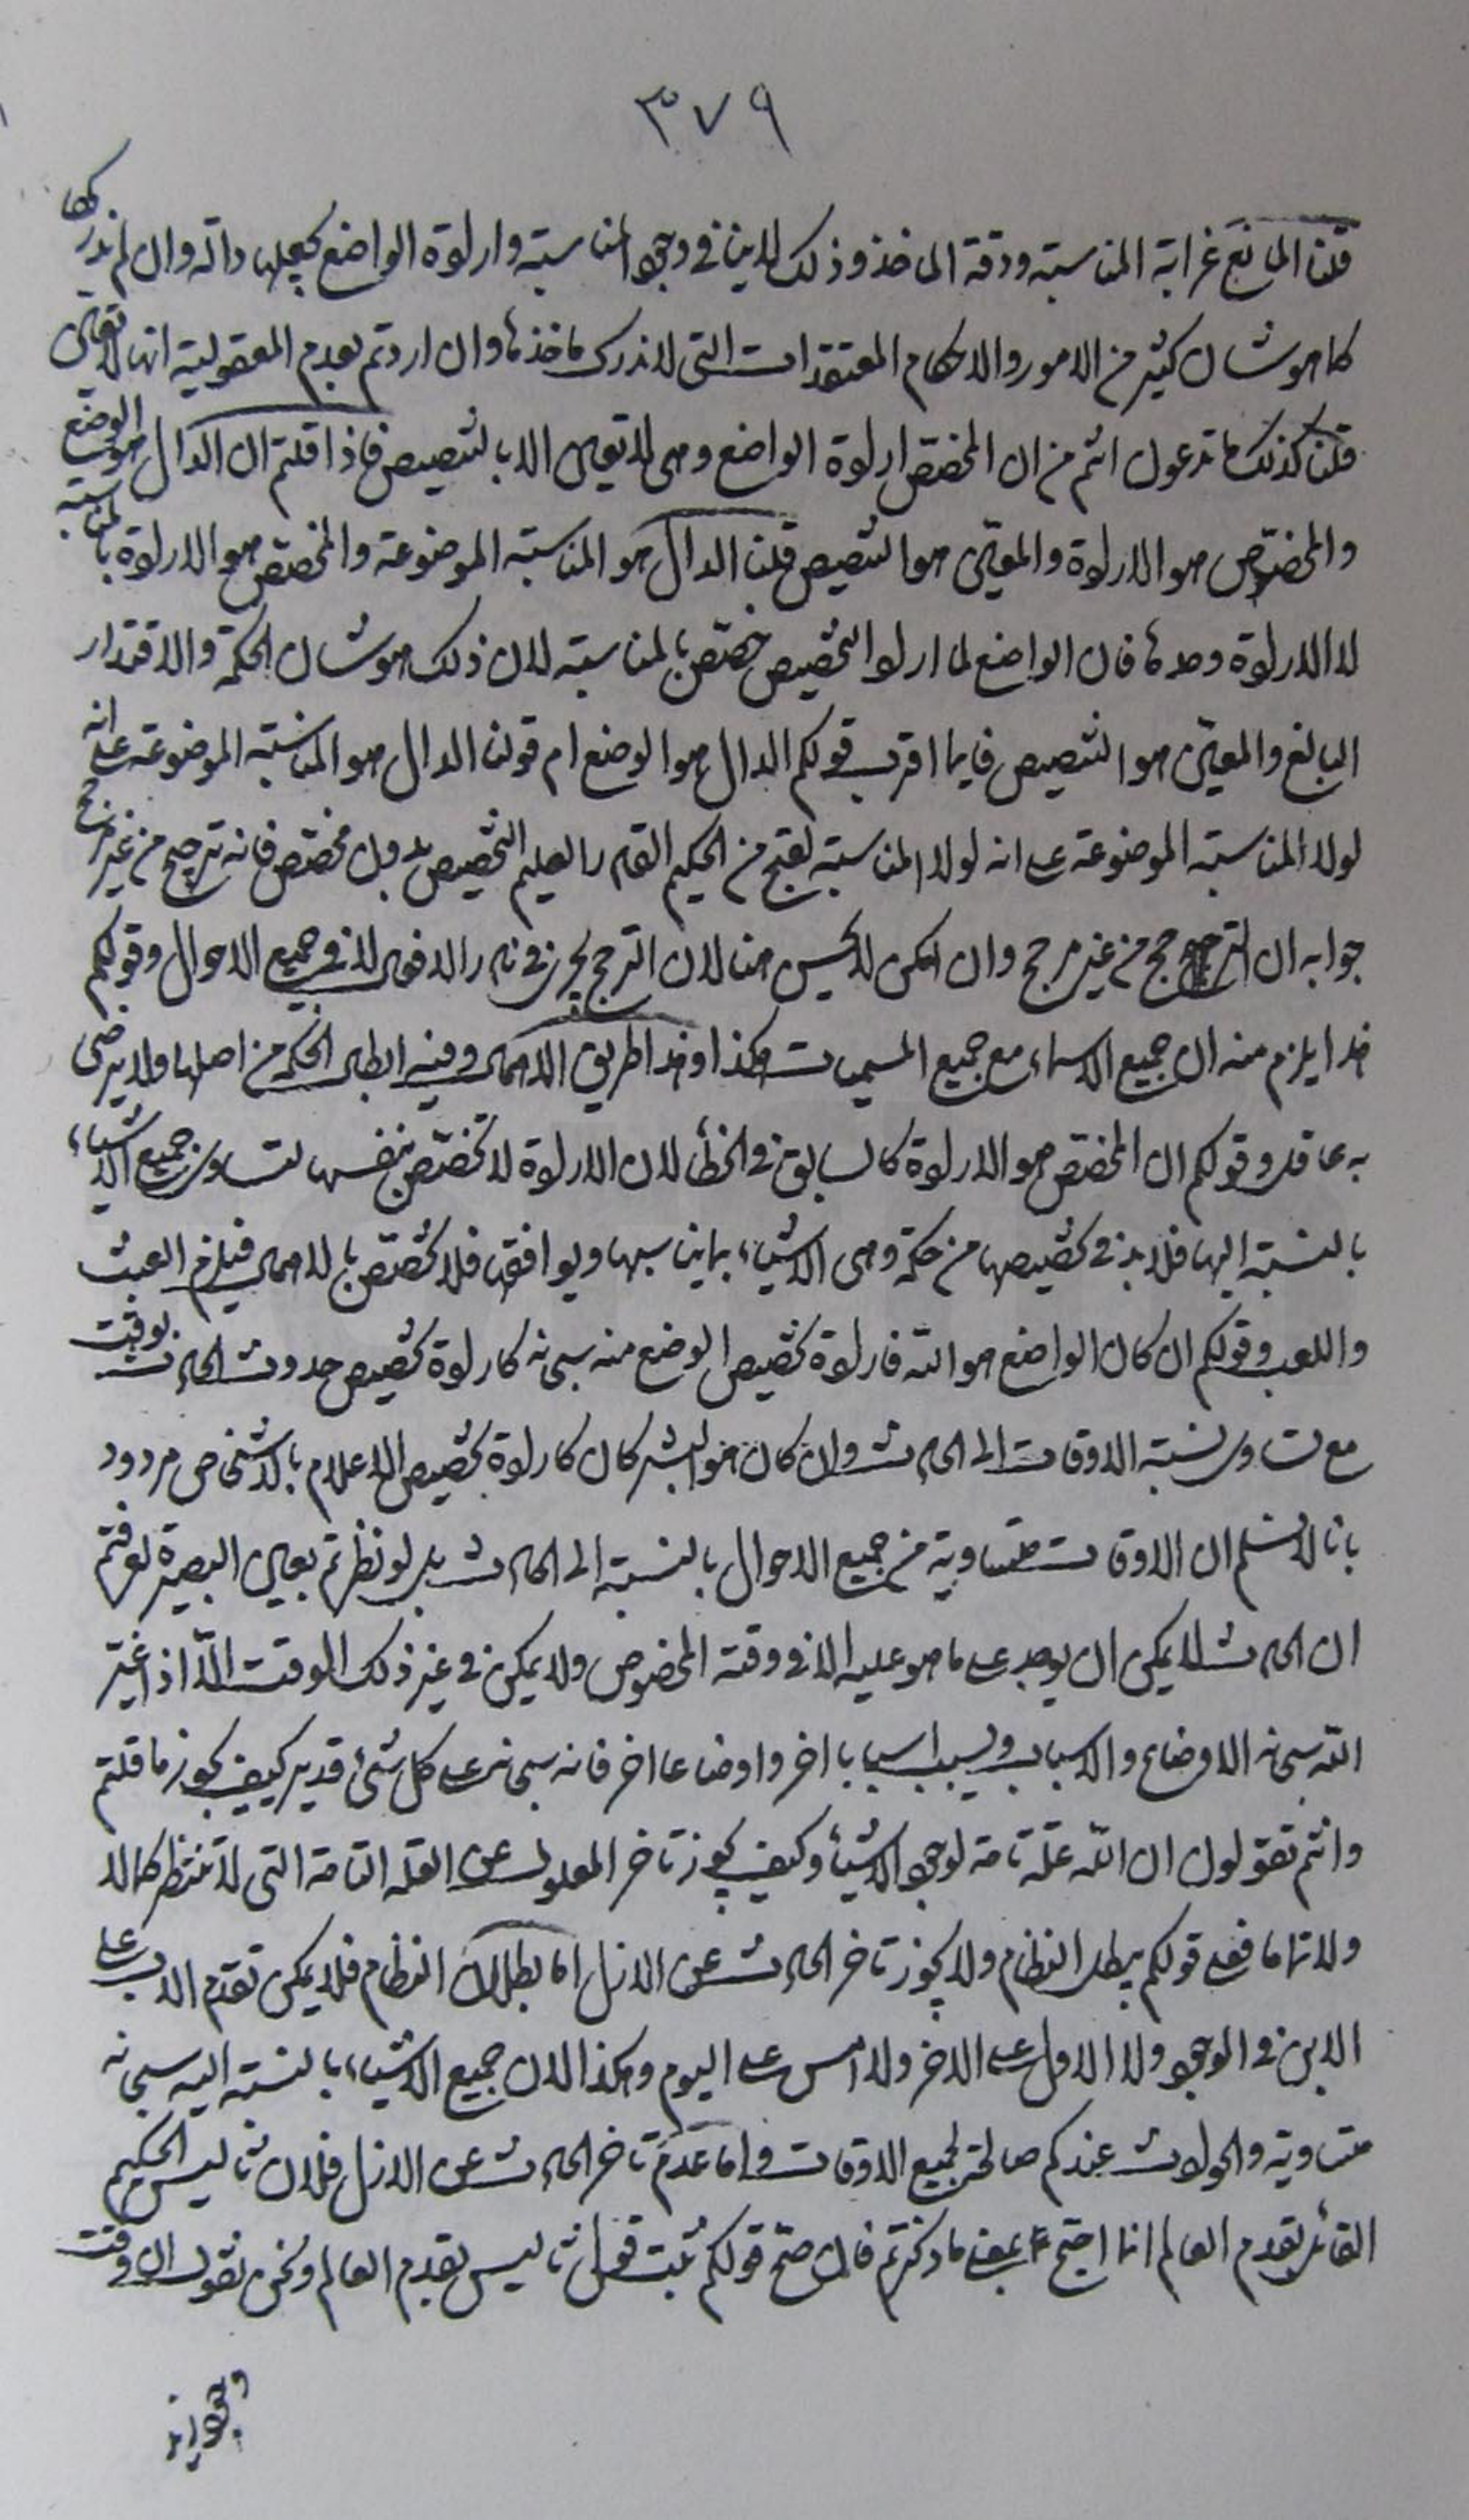 ٣٧٩
قلنا المانع غرابة المناسبة ودقة الماخذ وذلك لاينافى وجود المناسبة وارادة الواضع بجعلها دالة وان لم ندركها
كما هو شان كثير من الامور والاحكام المعتقدات التى لاندرك ماخذها وان اردتم بعدم المعقولية انها لاتعين
قلنا كذلك ما تدعون انتم من ان المخصّص ارادة الواضع وهى لاتعين الا بالتنصيص فاذا قلتم ان الدال هو الوضع
والمخصّص هو الارادة والمعيّن هو التنصيص قلنا الدال هو المناسبة الموضوعة والمخصّص هو الارادة بالمناسبة
لا الارادة وحدها فان الواضع لما اراد التخصيص خصّص بالمناسبة لان ذلك هو شان الحكمة والاقتدار
البالغ والمعيّن هو التنصيص فايما اقرب قولكم الدال هو الوضع ام قولنا الدال هو المناسبة الموضوعة على انه
لولا المناسبة الموضوعة على انه لولا المناسبة لقبح من الحكيم القادر العليم التخصيص بدون مخصّص فانه ترجيح من غير مرجح
جوابه ان الترجيح من غير مرجح وان امكن لا يحسن هنا لان الترجيح يجرى فى نادر الافعال لا فى جميع الاحوال وقولكم
هذا يلزم منه ان جميع الاسماء مع جميع المسميات هكذا وهذا طريق الاهمال وفيه ابطال الحكمة من اصلها ولا يرضى
به عاقل وقولكم ان المخصّص هو الارادة كالسابق فى الخطأ لان الارادة لا تخصّص بنفسها لتساوى جميع الاشياء
بالنسبة اليها فلابد فى تخصيصها من حكمة وهى الاشياء بما يناسبها ويوافقها فلا تخصّص بالاهمال فيلزم العبث
واللعب وقولكم ان كان الواضع هو الله فارادة تخصيص الوضع منه سبحانه كارادة تخصيص حدوث الحادث بوقت
مع تساوى نسبة الاوقات الى الحادث وان كان هو البشر كان كارادة تخصيص الاعلام بالاشخاص مردود
بانا لانسلم ان الاوقات متساوية من جميع الاحوال بالنسبة الى الحادث بل لو نظرتم بعين البصيرة لعرفتم
ان الحادث لا يمكن ان يوجد على ما هو عليه الا فى وقته المخصوص ولا يمكن فى غير ذلك الوقت الّا اذا غيّر
الله سبحانه الاوضاع والاسباب ويسبب اسبابا اخر واوضاعا اخر فانه سبحانه على كل شئ قدير كيف يجوز ما قلتم
وانتم تقولون ان الله علّة تامة لوجود الاشياء وكيف يجوز تاخر المعلول عن العلة التامة التى لا تنتظر كمالا
ولا تماما فعلى قولكم يبطل النظام ولا يجوز تاخر الحادث عن الازل اما بطلان النظام فلا يمكن تقدم الاب على
الابن فى الوجود ولا الاول على الاخر ولا امس على اليوم وهكذا لان جميع الاشياء بالنسبة اليه سبحانه
متساوية والحوادث عندكم صالحة لجميع الاوقات واما عدم تاخر الحادث عن الازل فلان ثاليس الحكيم
القائل بقدم العالم انما احتج بمعنى ما ذكرتم فان صحّ قولكم ثبت قول ثاليس بقدم العالم ونحن نقول ان وقت